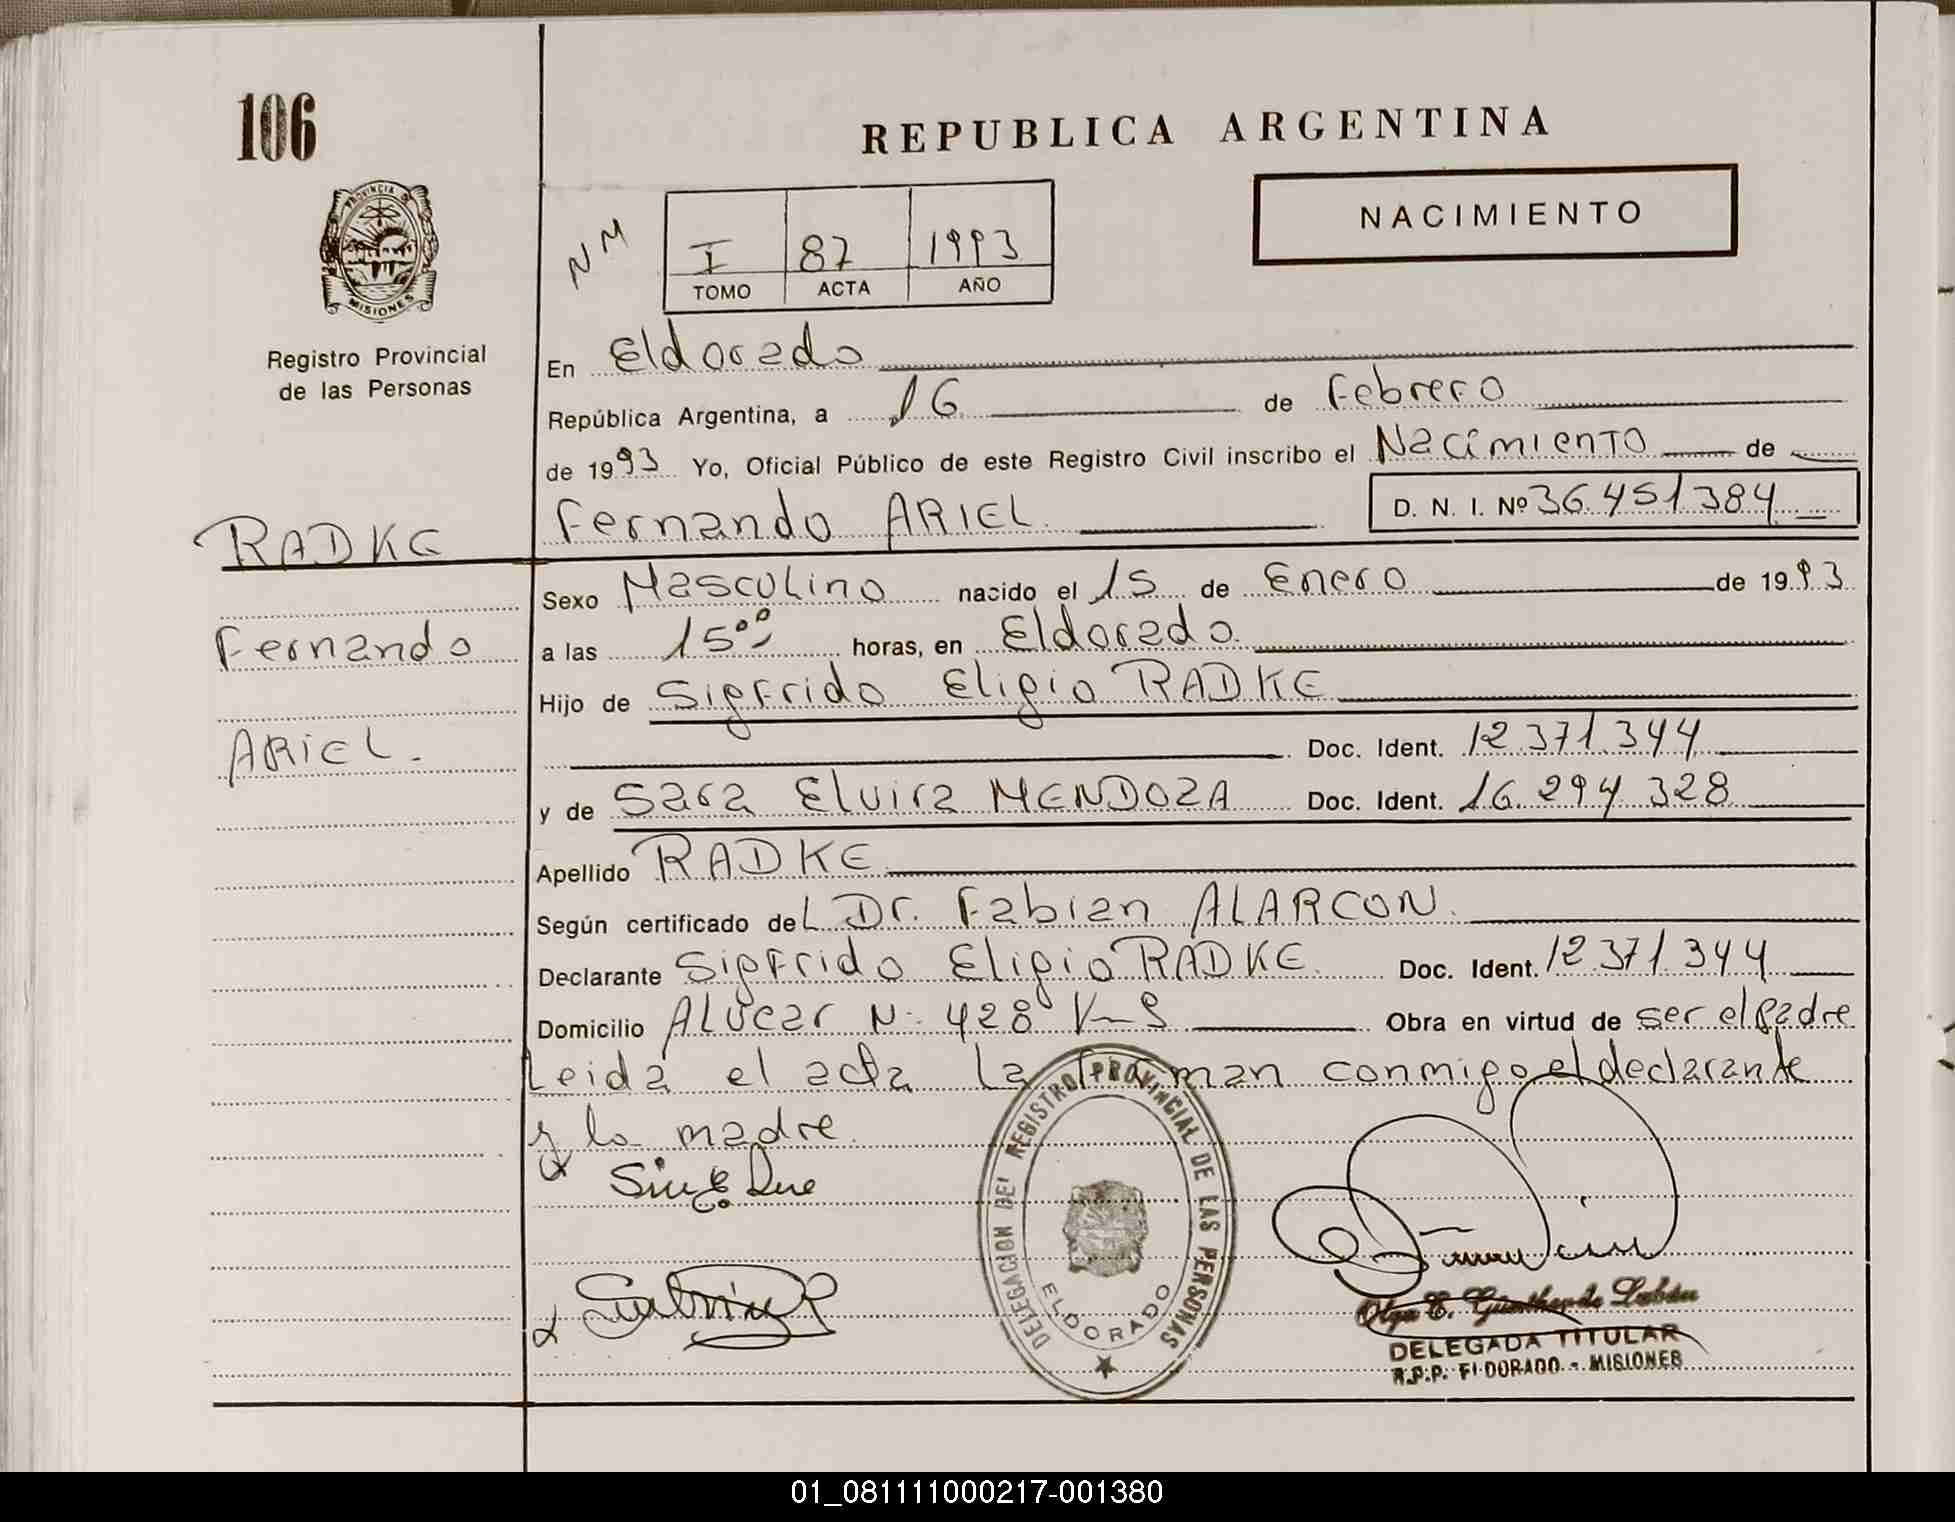 106
REPUBLICA ARGENTINA
NACIMIENTO
PROVINCIA
MISIONES
Registro Provincial
de las Personas
NM
I 87 1993
TOMO ACTA AÑO
En Eldorado
República Argentina, a 16 de Febrero
de 1993 Yo, Oficial Público de este Registro Civil inscribo el Nacimiento de
RADKE Fernando ARIEL D. N. I. Nº 36.451384
Sexo Masculino nacido el 15 de Enero de 1993
Fernando a las 15ºº horas, en Eldorado.
Hijo de Sigfrido Eligio RADKE
ARIEL. Doc. Ident. 12.371.344
y de Sara Elvira MENDOZA Doc. Ident. 16.294 328
Apellido RADKE
Según certificado del Dr. Fabian ALARCON.
Declarante Sigfrido Eligio RADKE. Doc. Ident. 12.371.344
Domicilio ALvear Nº 428 Obra en virtud de ser el padre
Leida el acta la firman conmigo el declarante
y la madre.
DELEGACION DEL REGISTRO PROVINCIAL DE LAS PERSONAS
ELDORADO
Olga E. Günther de Lubán
DELEGADA TITULAR
R.P.P. ELDORADO - MISIONES
01_081111000217-001380